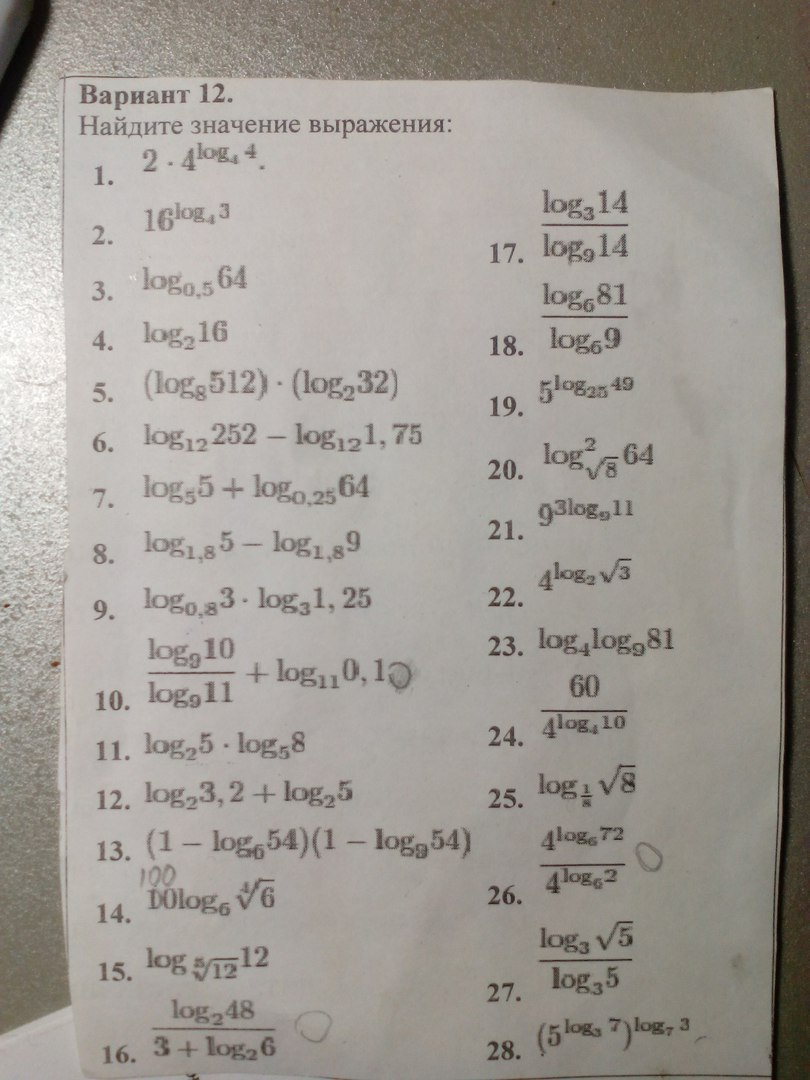 Вариант 12.
Найдите значение выражения:
1. 2 · 4^{log_4 4}.
2. 16^{log_4 3}
3. log_{0,5} 64
4. log_2 16
5. (log_8 512) · (log_2 32)
6. log_{12} 252 − log_{12} 1, 75
7. log_5 5 + log_{0,25} 64
8. log_{1,8} 5 − log_{1,8} 9
9. log_{0,8} 3 · log_3 1, 25
10. \frac{log_9 10}{log_9 11} + log_{11} 0, 1
11. log_2 5 · log_5 8
12. log_2 3, 2 + log_2 5
13. (1 − log_6 54)(1 − log_9 54)
100
14. 10log_6 \sqrt[4]{6}
15. log_{\sqrt[5]{12}} 12
16. \frac{log_2 48}{3 + log_2 6}
17. \frac{log_3 14}{log_9 14}
18. \frac{log_6 81}{log_6 9}
19. 5^{log_{25} 49}
20. log^2_{\sqrt{8}} 64
21. 9^{3log_9 11}
22. 4^{log_2 \sqrt{3}}
23. log_4 log_9 81
24. \frac{60}{4^{log_4 10}}
25. log_{\frac{1}{8}} \sqrt{8}
26. \frac{4^{log_6 72}}{4^{log_6 2}}
27. \frac{log_3 \sqrt{5}}{log_3 5}
28. (5^{log_3 7})^{log_7 3}